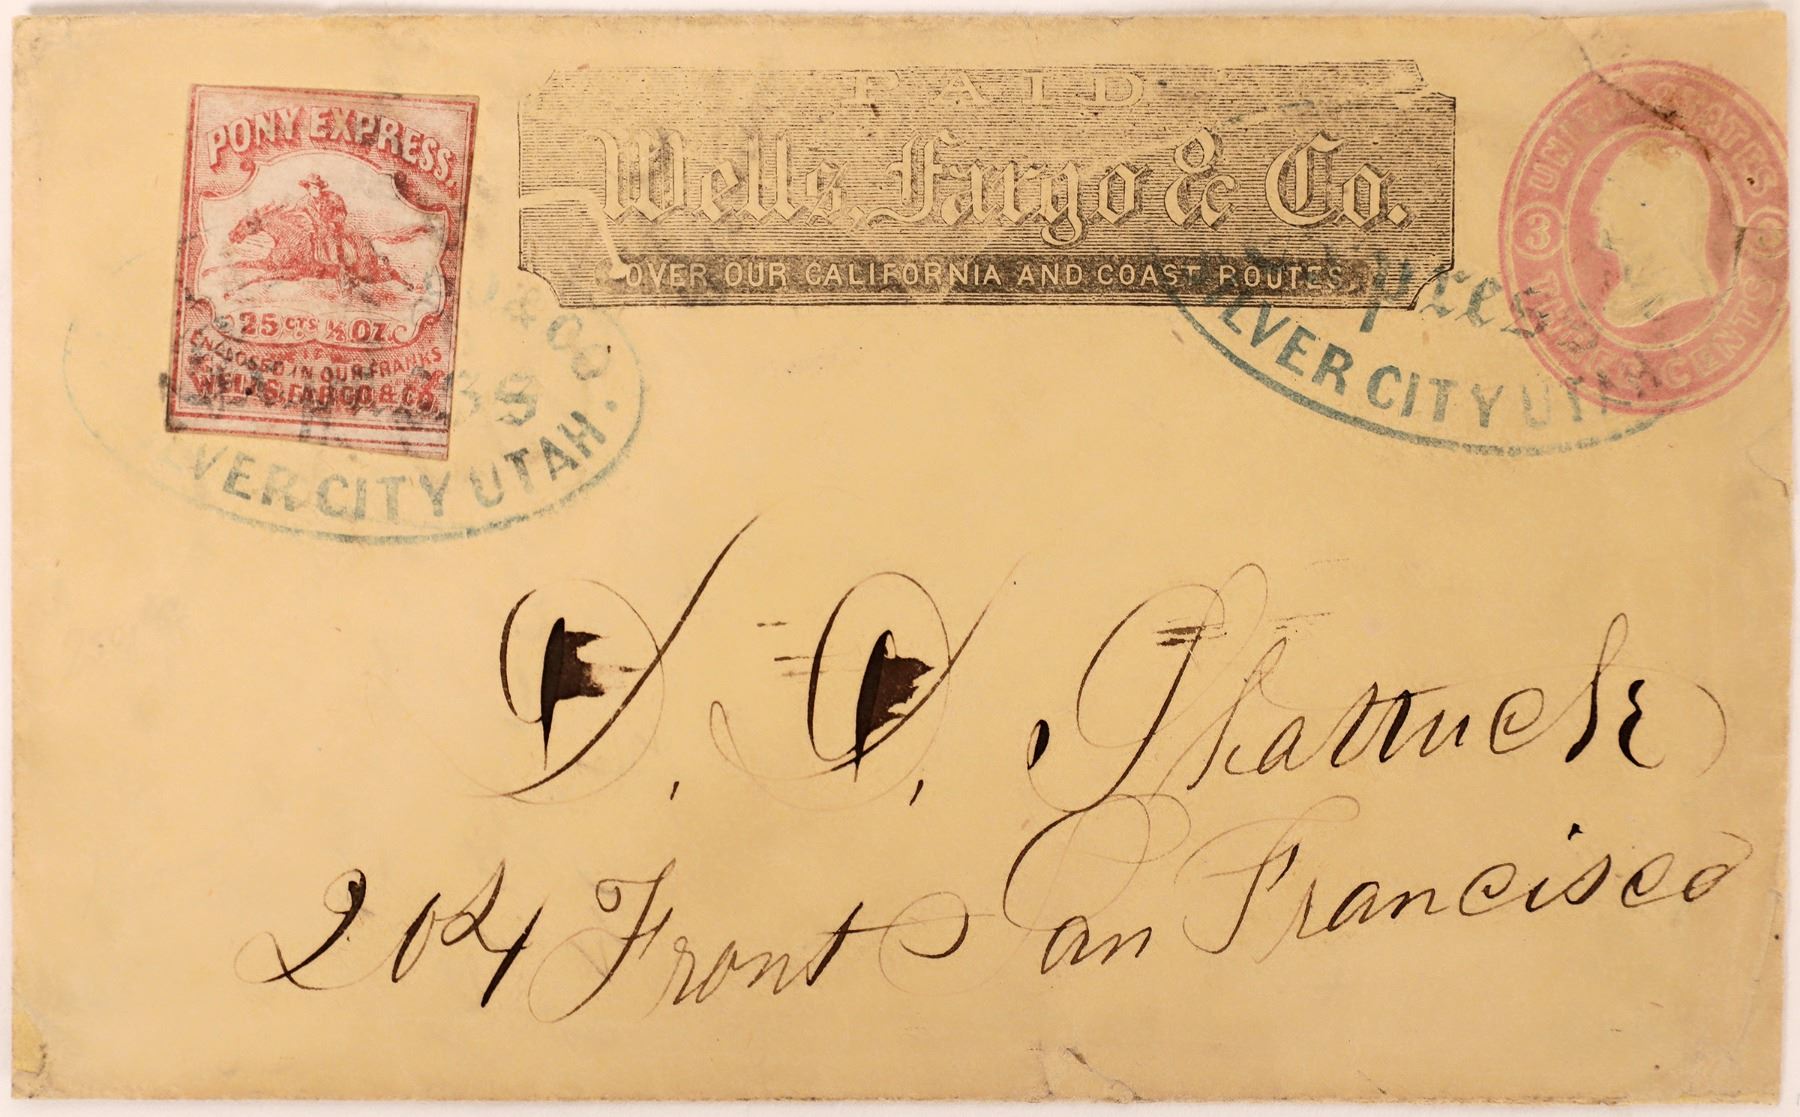 PONY EXPRESS.
25 CTS. ½ OZ.
ENCLOSED IN OUR FRANKS
WELLS, FARGO & CO.
& CO
SILVER CITY UTAH.
PAID
Wells, Fargo & Co.
OVER OUR CALIFORNIA AND COAST ROUTES.
SILVER CITY UTAH
UNITED STATES
3 3
THREE CENTS
D. D. Shattuck
204 Front San Francisco